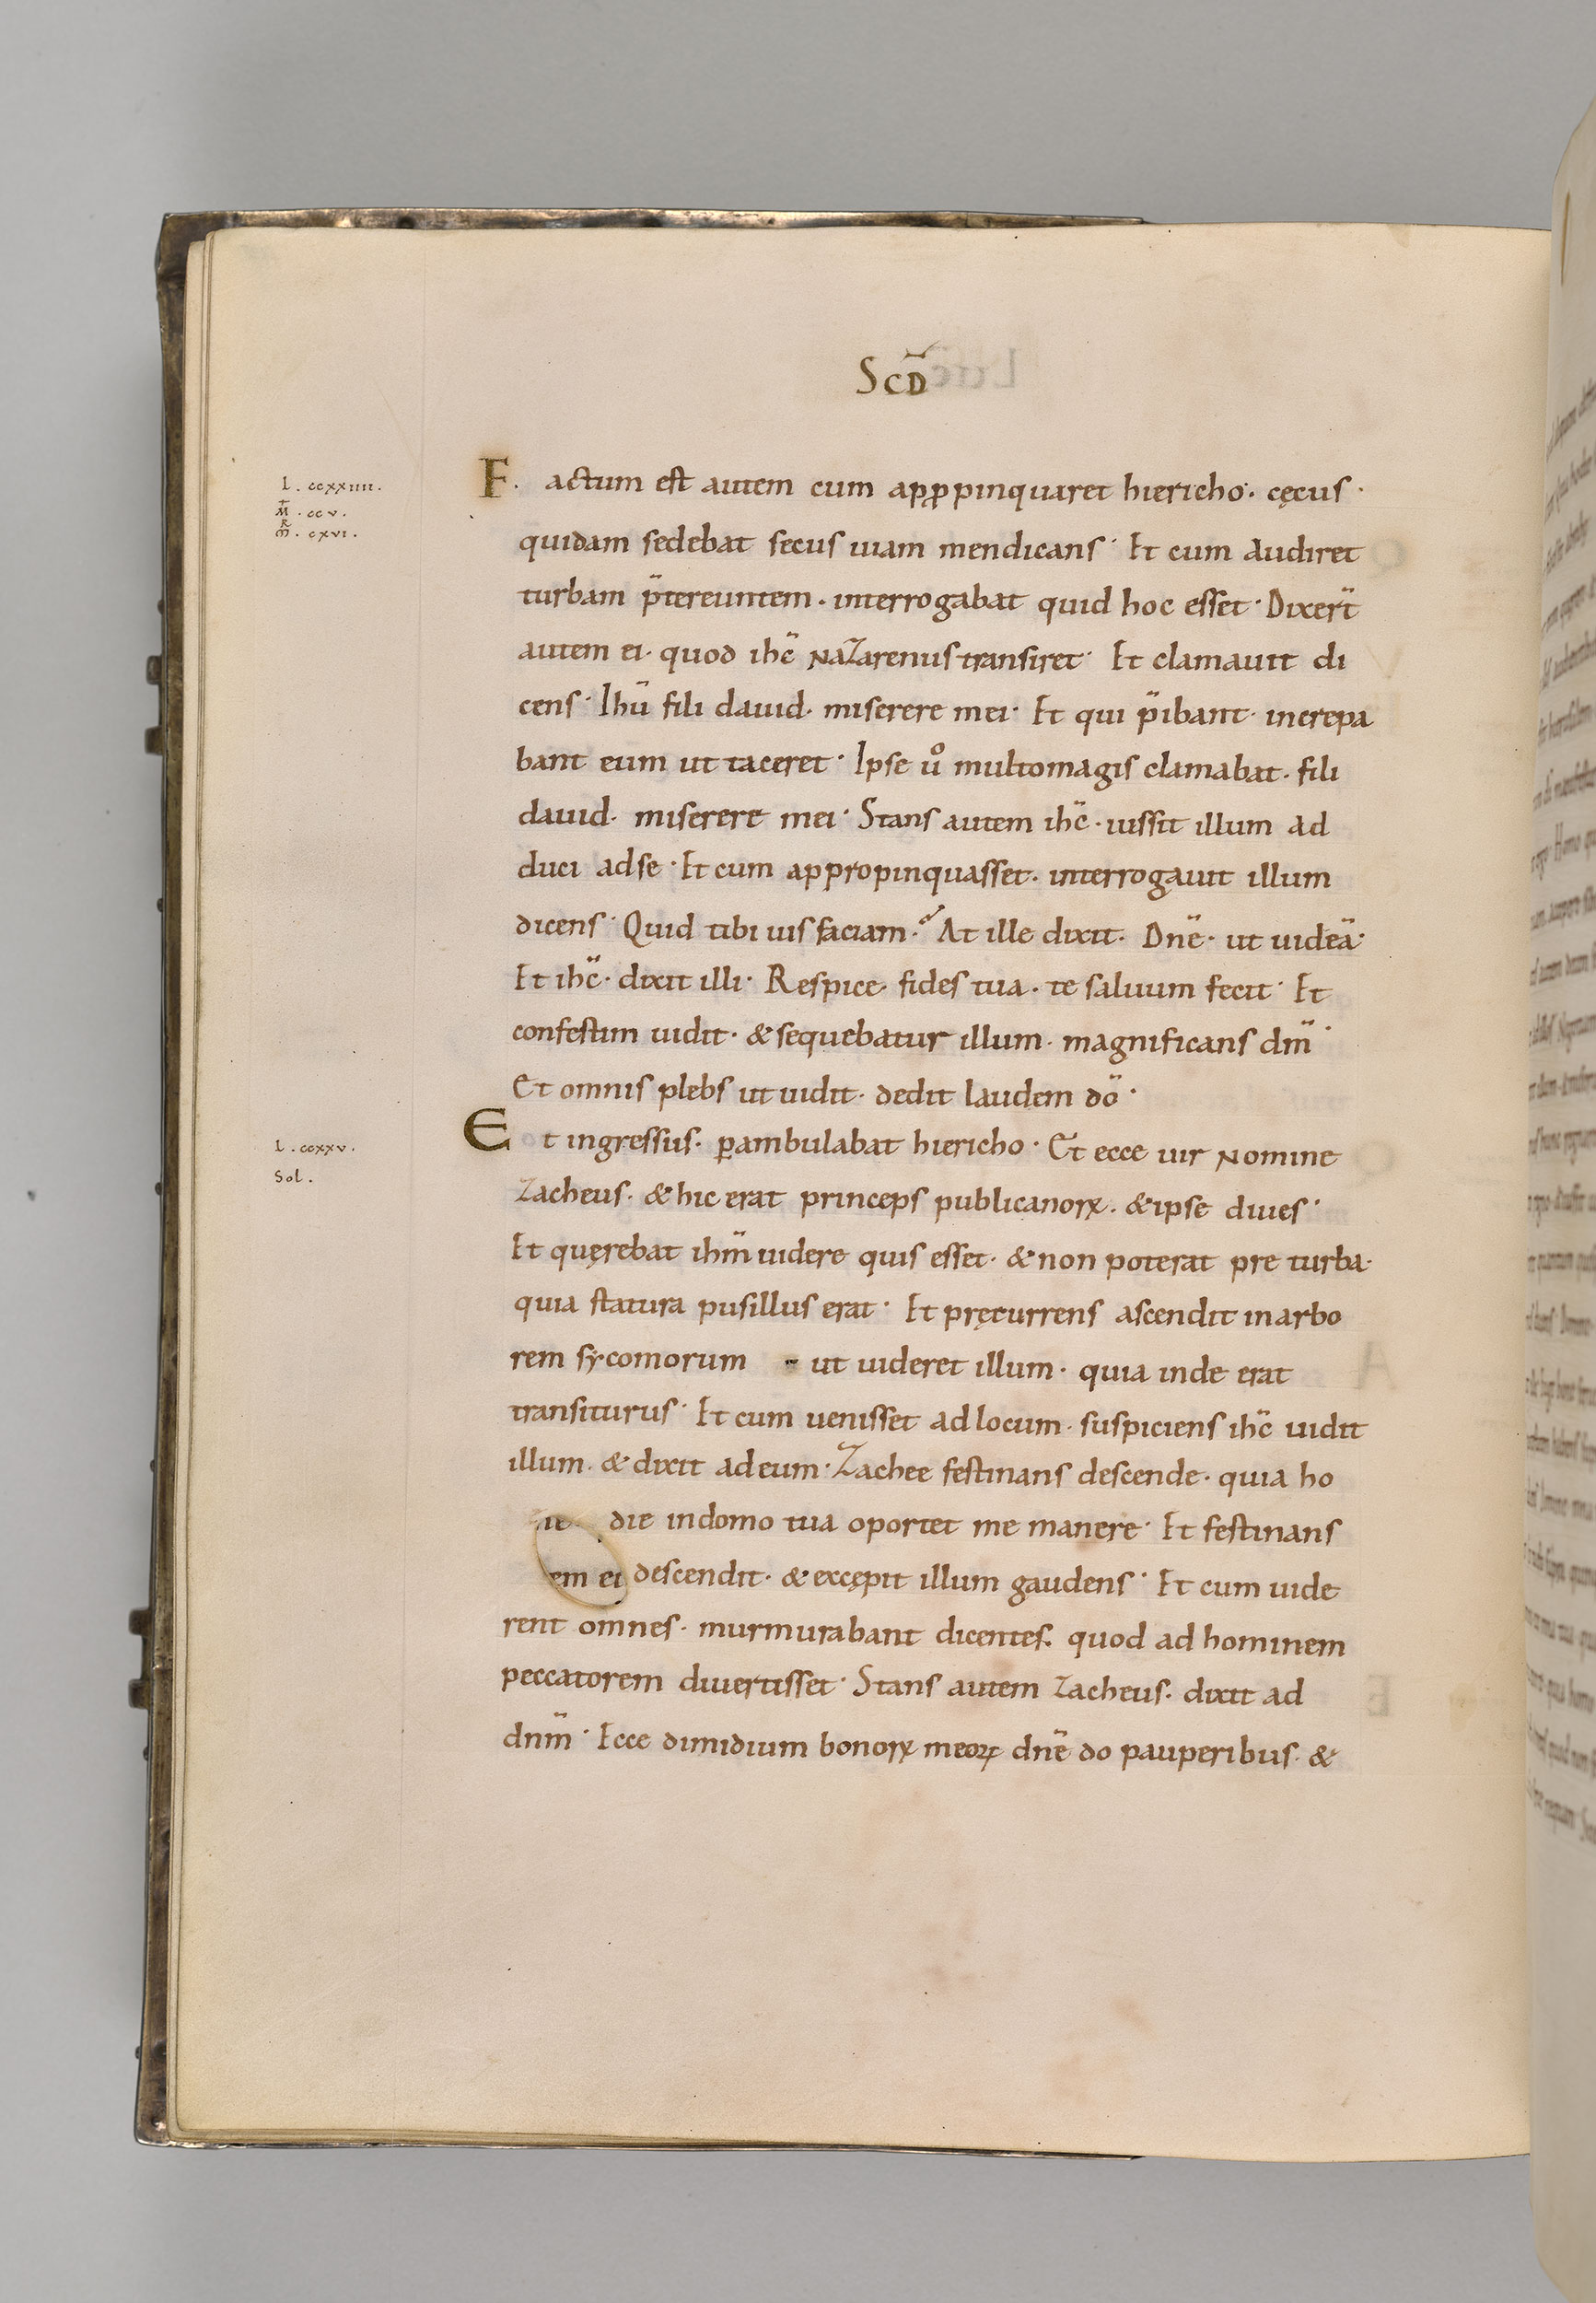 SCD̄
L. ccxxiiii.
M. ccv.
M. cxvi.
F. actum est autem cum apꝓpinquaret hiericho. cęcus.
quidam sedebat secus uiam mendicans. Et cum audiret
turbam p̄tereuntem. interrogabat quid hoc esset. Dixer̄t
autem ei. quod ihc̄ NaZarenus transiret. Et clamauit di
cens. Ihū fili dauid. miserere mei. Et qui p̄ibant. increpa
bant eum ut taceret. Ipse uº multomagis clamabat. fili
dauid. miserere mei. Stans autem ihc̄. iussit illum ad
duci adse. Et cum appropinquasset. interrogauit illum
dicens. Quid tibi uis faciam. At ille dixit. Dnē. ut uideā.
Et ihc̄. dixit illi. Respice. fides tua. te saluum fecit. Et
confestim uidit. & sequebatur illum. magnificans dm̄.
Et omnis plebs ut uidit. dedit laudem dō.
L. ccxxv.
Sol.
Et ingressus. ꝑambulabat hiericho. Et ecce uir Nomine
Zacheus. & hic erat princeps publicanoꝝ. & ipse diues.
Et quęrebat ihm̄ uidere quis esset. & non poterat pre turba.
quia statura pusillus erat. Et pręcurrens ascendit inarbo
rem sycomorum ut uideret illum. quia inde erat
transiturus. Et cum uenisset ad locum. suspiciens ihc̄ uidit
illum. & dixit ad eum. Zachee festinans descende. quia ho
die indomo tua oportet me manere. Et festinans
em ei descendit. & excępit illum gaudens. Et cum uide
rent omnes. murmurabant dicentes. quod ad hominem
peccatorem diuertisset. Stans autem Zacheus. dixit ad
dnm̄. Ecce dimidium bonoꝝ meoꝝ dnē do pauperibus. &